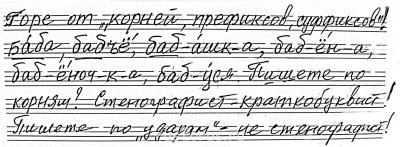 Горе от „корней, префиксов, суффиксов"!
Ба́ба, бабъё, баб-а́шк-а, баб-ён-а,
баб-ёноч-к-а, баб-у́ся Пишете по
корням? Стенографист-краткобуквист!
Пишете по „ударам"-не стенографист!